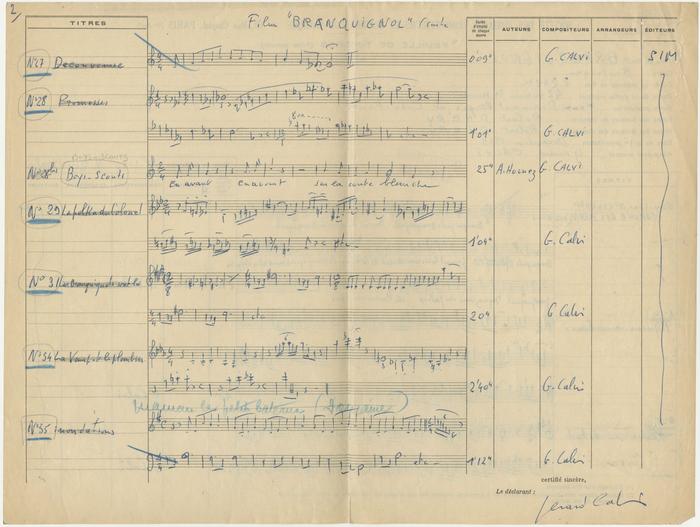 2/
Film "BRANQUIGNOL" (suite
TITRES
Durée d'emploi de chaque œuvre
AUTEURS
COMPOSITEURS
ARRANGEURS
ÉDITEURS
N°27 Deconvenue 0'09" G. CALVI SIM
N°28 Promesses
8va
1'01" G. CALVI
BOYS-SCOUTS
Boys-Scouts 25" A. Hornez G. CALVI
En avant En avant sur la route blanche
N° 29 La polka du colonel
etc
1'04" G. Calvi
N° 31 Les Branquignols sont là
etc
20" G Calvi
N°34 La Vamp et le plombier
2'40" G. Calvi
N°35 Inondations
etc
1'12" G. Calvi
certifié sincère,
Le déclarant :
Gérard Calvi